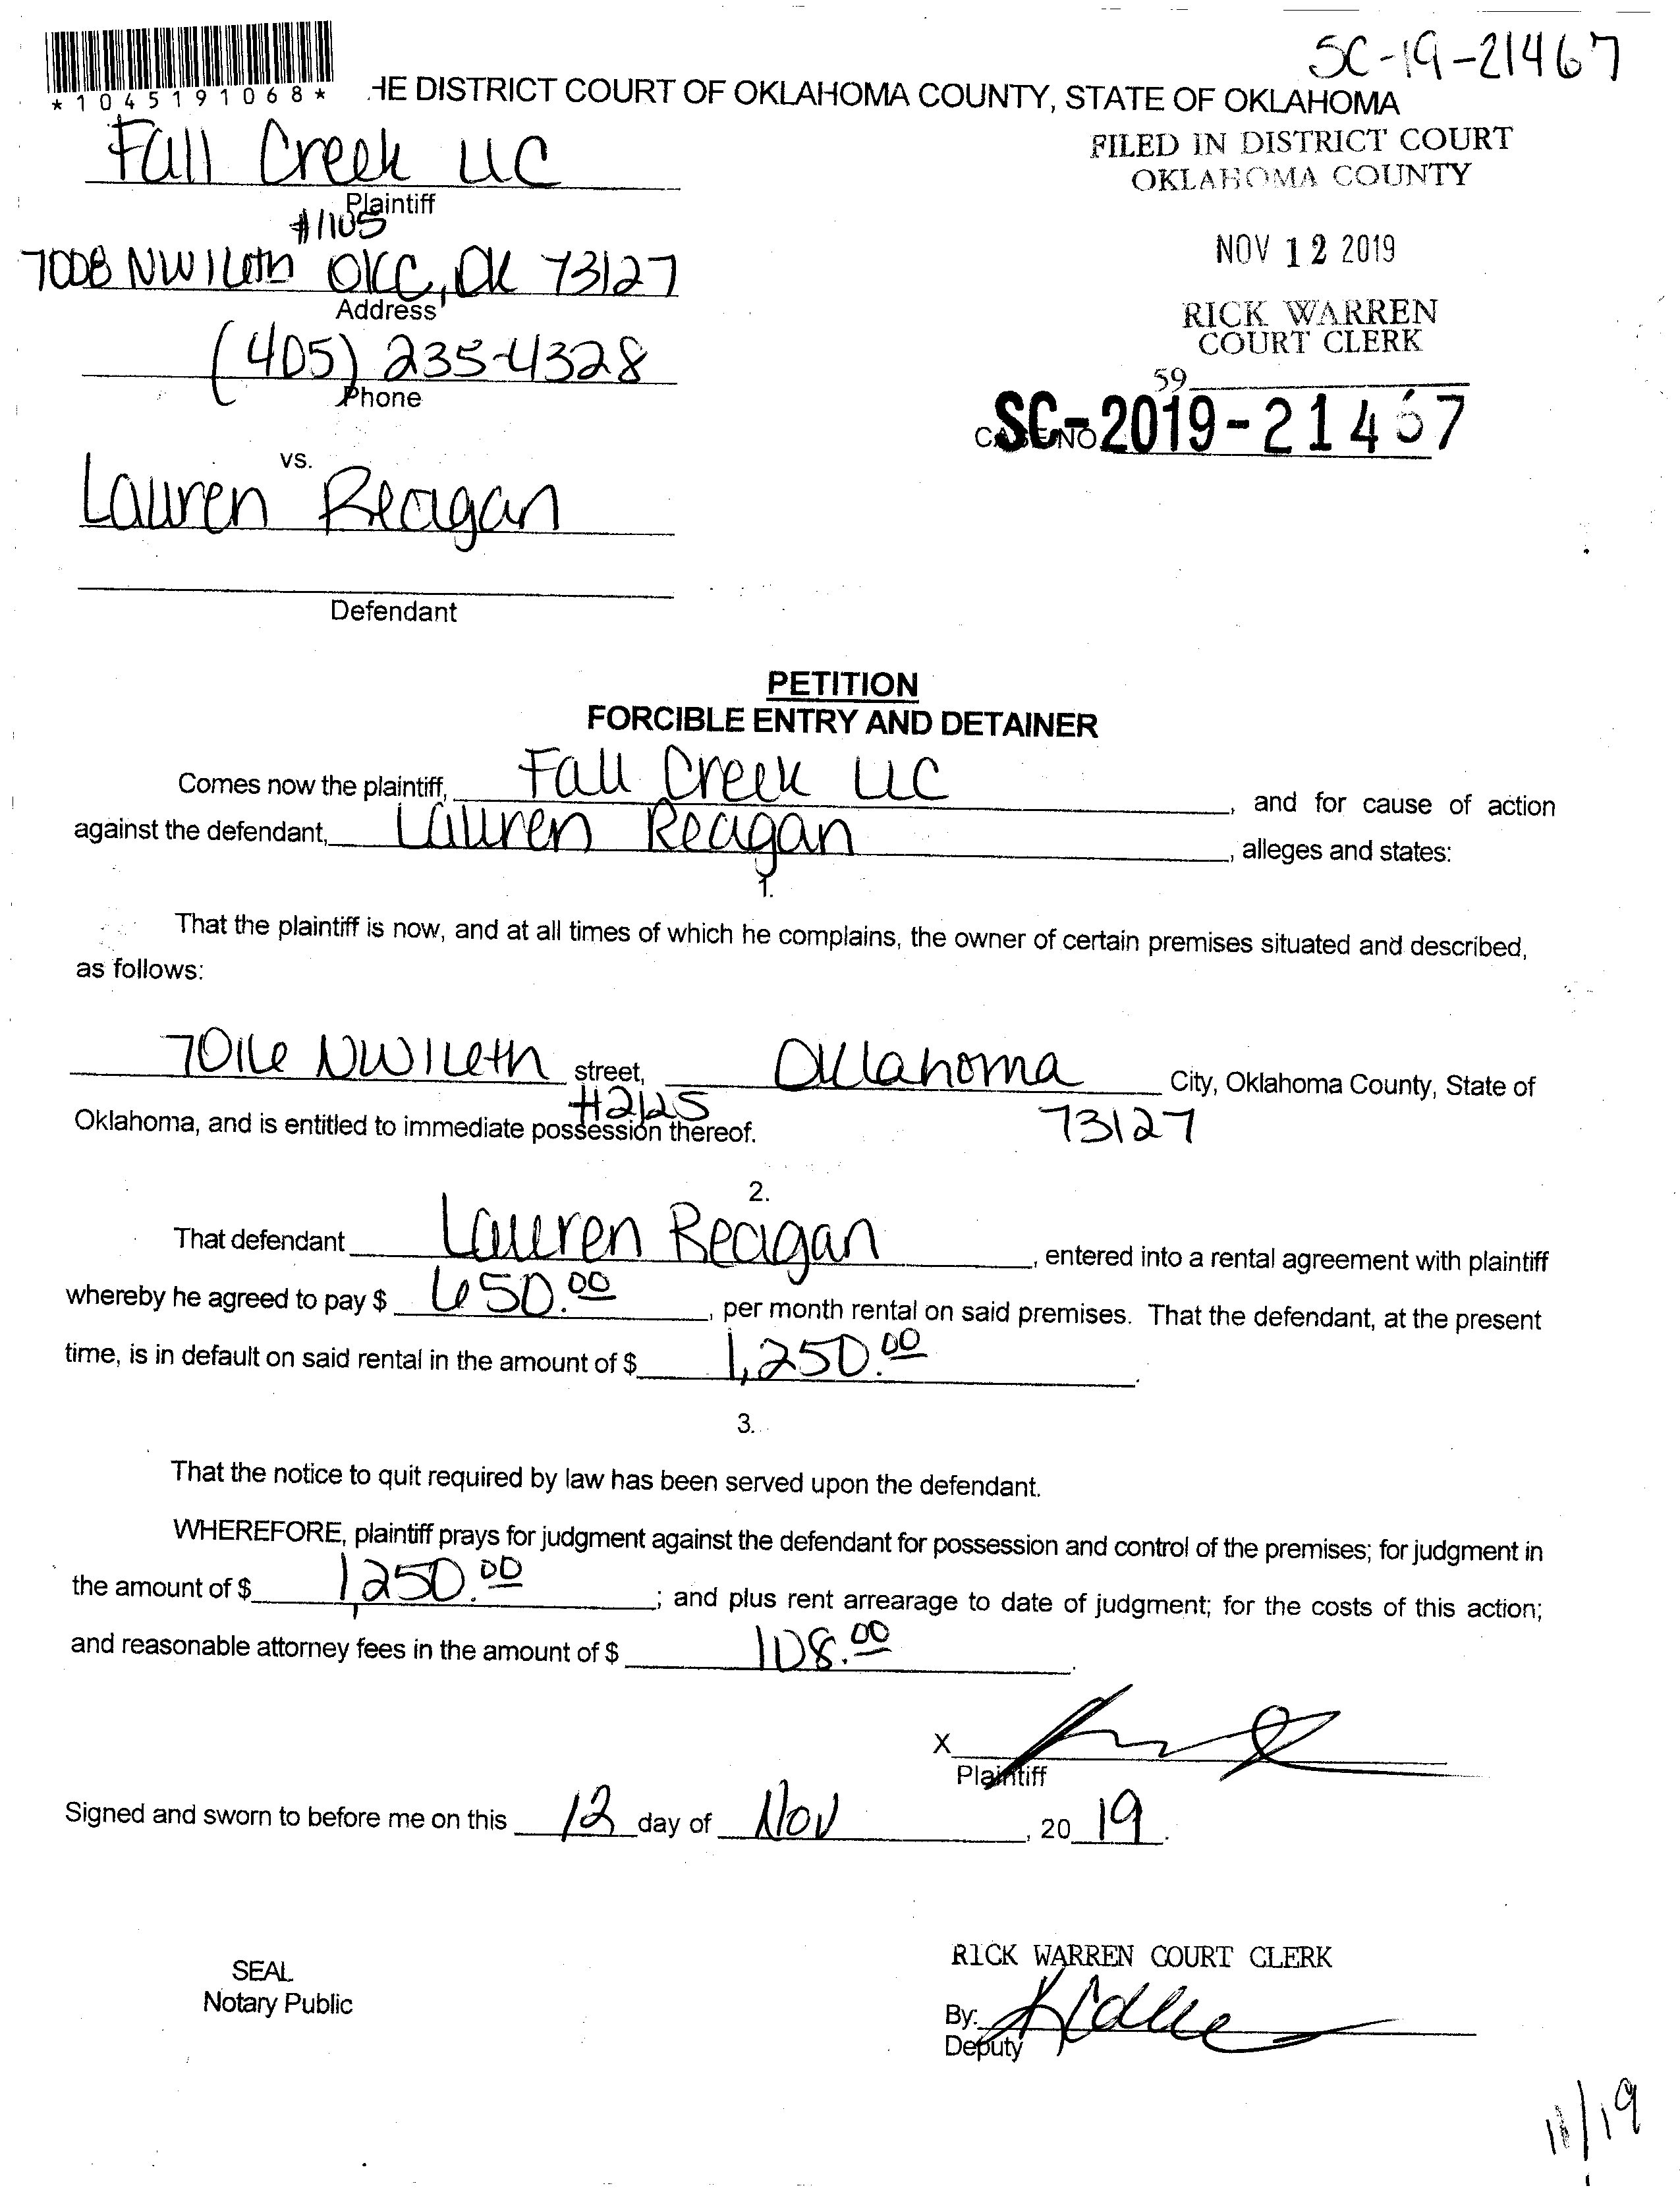 SC-19-21467
*1045191068*
HE DISTRICT COURT OF OKLAHOMA COUNTY, STATE OF OKLAHOMA
Fall Creek LLC
Plaintiff
FILED IN DISTRICT COURT
OKLAHOMA COUNTY
#1105
7008 NW 16th OKC, OK 73127
Address
NOV 12 2019
(405) 235-4328
Phone
RICK WARREN
COURT CLERK
59
CASE NO. SC-2019-21467
vs.
Lauren Reagan
Defendant
PETITION
FORCIBLE ENTRY AND DETAINER
Comes now the plaintiff, Fall Creek LLC, and for cause of action
against the defendant, Lauren Reagan, alleges and states:
1.
That the plaintiff is now, and at all times of which he complains, the owner of certain premises situated and described,
as follows:
7016 NW 16th street, Oklahoma City, Oklahoma County, State of
#2125 73127
Oklahoma, and is entitled to immediate possession thereof.
2.
That defendant Lauren Reagan, entered into a rental agreement with plaintiff
whereby he agreed to pay $ 650.00, per month rental on said premises. That the defendant, at the present
time, is in default on said rental in the amount of $ 1,250.00.
3.
That the notice to quit required by law has been served upon the defendant.
WHEREFORE, plaintiff prays for judgment against the defendant for possession and control of the premises; for judgment in
the amount of $ 1,250.00; and plus rent arrearage to date of judgment; for the costs of this action;
and reasonable attorney fees in the amount of $ 108.00.
X
Plaintiff
Signed and sworn to before me on this 12 day of Nov, 20 19.
SEAL
Notary Public
RICK WARREN COURT CLERK
By:
Deputy
11/19